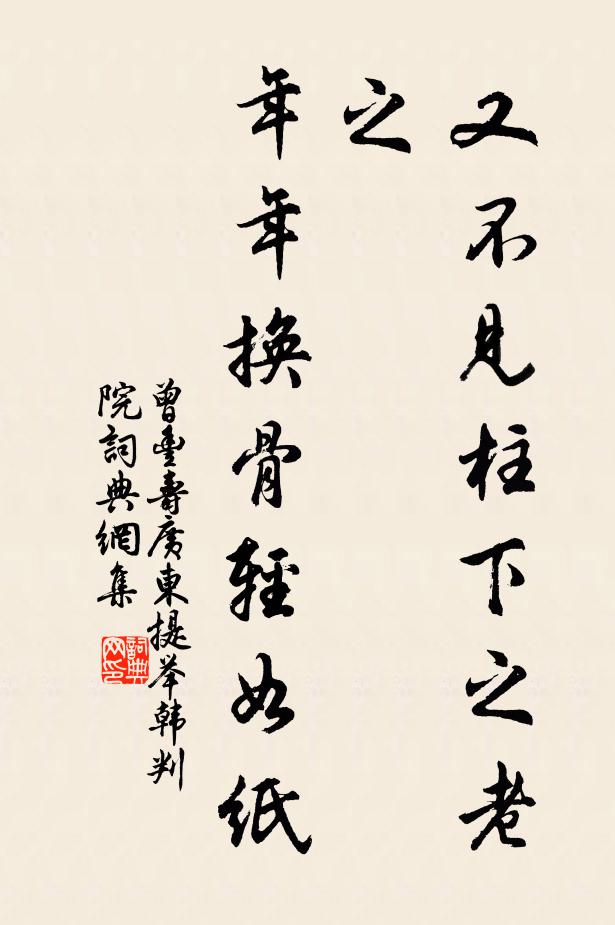 又不見柱下之老
之
年年換骨輕如紙
曾豐壽廣東提举韩判
院詞典網集
詞典
网印